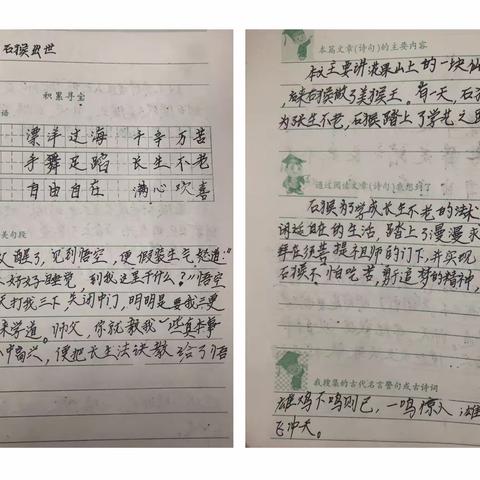 石猴出世
积累寻宝
语
漂洋过海 千辛万苦
手舞足蹈 长生不老
自由自在 满心欢喜
美句段
父醒了,见到悟空,便假装生气
好好睡觉,到我这里干什么?"悟空
天打我三下,关闭中门,明明是要我三更
来学道。师父,你就教我一些真本事
中高兴,便把长生法诀教给了悟
本篇文章(诗句)的主要内容
本文主要讲花果山上的一块仙
后来石猴做了美猴王。有一天,石
为了长生不老,石猴踏上了学艺之
通过阅读文章(诗句)我想到了
石猴为了学成长生不老的法术
闲适的生活,踏上了漫漫求
拜在须菩提祖师的门下,并实现
石猴不怕吃苦,勇于追梦的精神,
我搜集的古代名言警句或古诗词
雄鸡不鸣则已,一鸣惊人;雄
飞冲天。